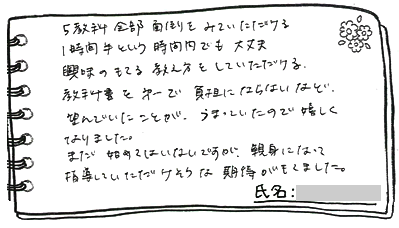 5教科 全部 面倒を みていただける
1時間半という 時間内でも 大丈夫
興味のもてる 教え方を していただける.
教科書を 第一で 負担にならないなど、
望んでいたことが、うまっていたので 嬉しく
なりました。
まだ 始めてはいないですが、親身になって
指導していただけそうな 期待がもてました。
氏名: